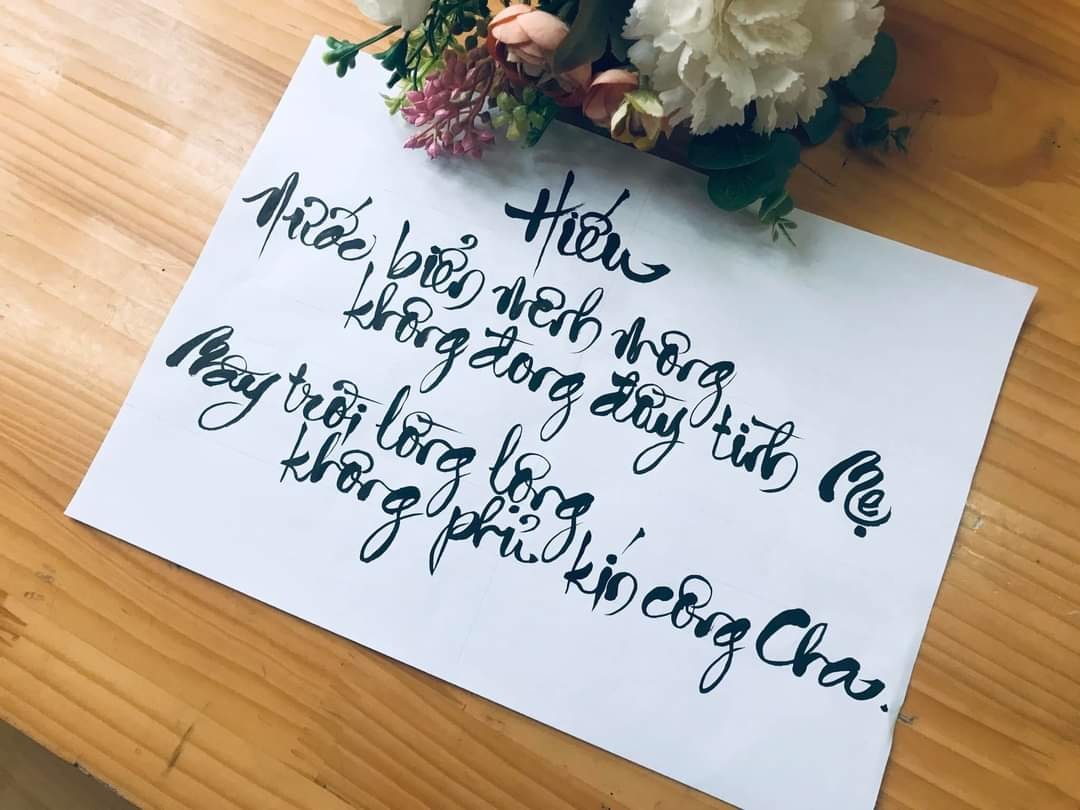 Hiếu
Nước biển mênh mông
không đong đầy tình Mẹ
Mây trời lồng lộng
không phủ kín công Cha.